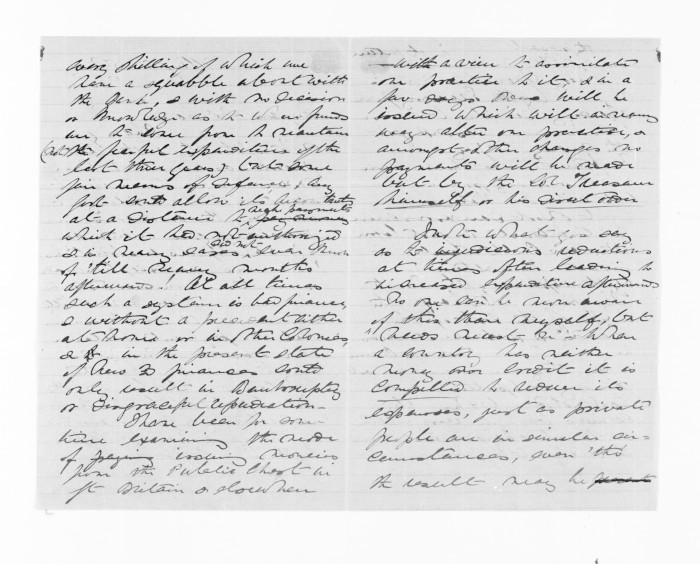 every shilling of which we
have a squabble about with
the Govt., & with no decision
or knowledge as to where funds
are to come from to maintain
(not the fearful expenditure of the
last three years) but some
fair means of defence; any
at a distance to
which it had not authorized
& in many cases did not even know
of 'till many months
afterwards! At all times
such a system is bad finance
& without a precedent either
at home or in other Colonies,
& in the present state
of New Z finances could
only result in Bankruptcy
or disgraceful repudiation—
I have been for some
time examining the mode
of paying issuing monies
from the Public Chest in
Gt Britain & elsewhere
with a view to assimilate
our practice to it, & in a
few days will be
issued which will in many
ways alter our practice, &
amongst other changes no
payments will be made
but by the Col Treasurer
himself or his direct order
I note what you say
as to injudicious reductions
at times often leading to
increased expenditure afterwards
No one can be more aware
of this than myself, but
"needs must" &c When
a country has neither
money nor credit it is
compelled to reduce its
expenses, just as private
people are in similar cir=
cumstances, even 'tho
the result may be